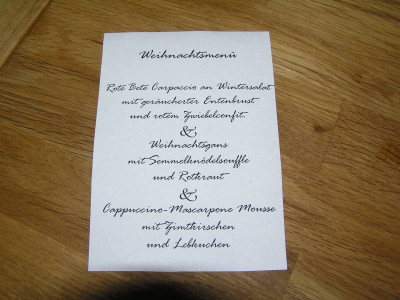 Weihnachtsmenü
Rote Bete Carpaccio an Wintersalat
mit geräucherter Entenbrust
und rotem Zwiebelconfit.
&
Weihnachtsgans
mit Semmelknödelsouffle
und Rotkraut
&
Cappuccino-Mascarpone Mousse
mit Zimtkirschen
und Lebkuchen